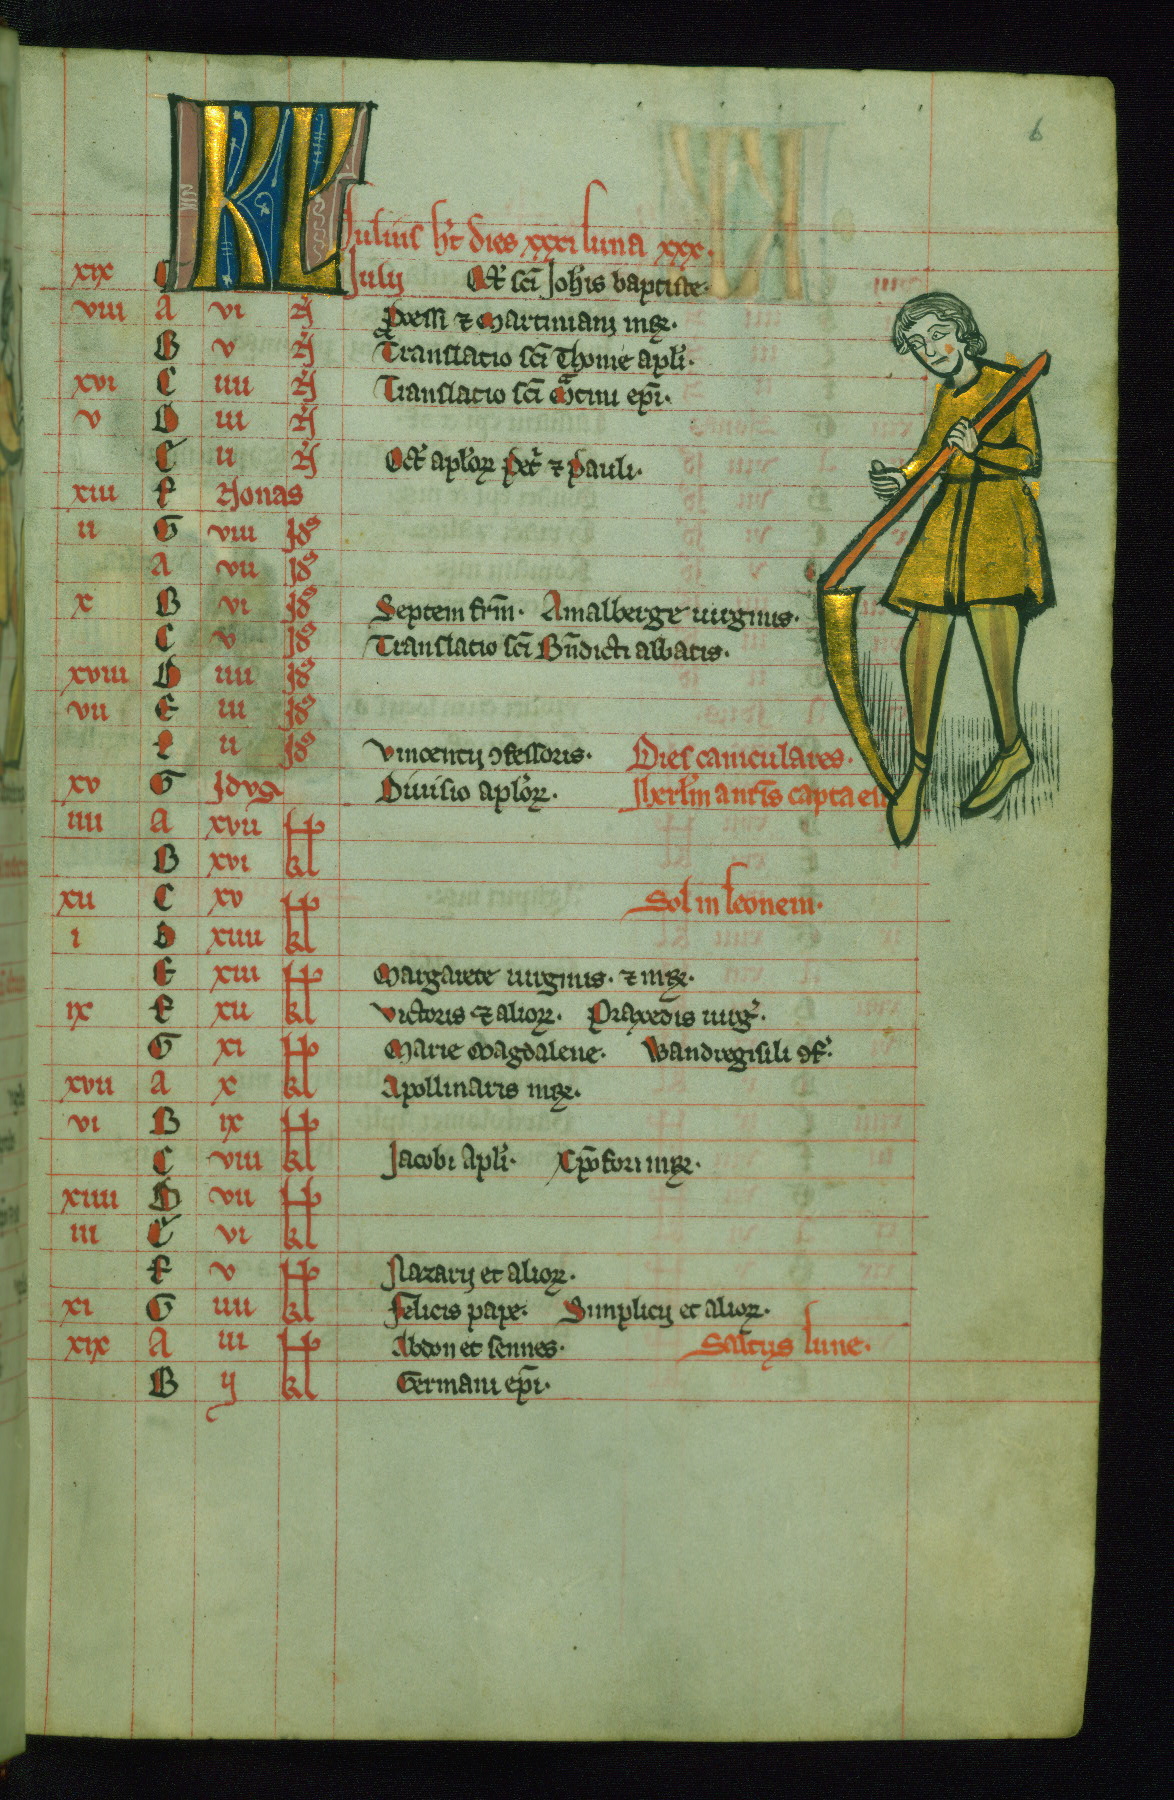 6
KL
Julius h't dies xxxi luna xxx.
xix G Julij Oct' sci Joh'is baptiste.
viii A vi N Processi ⁊ Martiniani
B v N Translatio sci Thome apl'i.
xvi C iiii N Translatio sci ep'i.
v D iii N
E ii N Oct' aplor' Pet' ⁊ Pauli.
xiii F Nonas
ii G viii Id'
A vii Id'
x B vi Id' Septem fr'm. Amalberge uirginis.
C v Id' Translatio sci B'ndicti abbatis.
xviii D iiii Id'
vii E iii Id'
F ii Id' Vincentij ꝯfessoris. Dies caniculares.
xv G Idus Diuisio aplor'. Jherl'm capta est
iiii A xvii kl
B xvi kl
xii C xv kl Sol in leonem.
i D xiiii kl
E xiii kl Margarete uirginis. ⁊ m'r.
ix F xii kl Victoris ⁊ alior'. Praxedis uirg'.
G xi kl Marie Magdalene. Wandregisili ꝯf'.
xvii A x kl Apollinaris m'r.
vi B ix kl
C viii kl Jacobi apl'i. Xp'ofori m'r.
xiiii D vii kl
iii E vi kl
F v kl Nazarij et alior'.
xi G iiii kl Felicis pape. Simplicij et alior'.
xix A iii kl Abdon et sennes. Saltus lune.
B ij kl Germani ep'i.